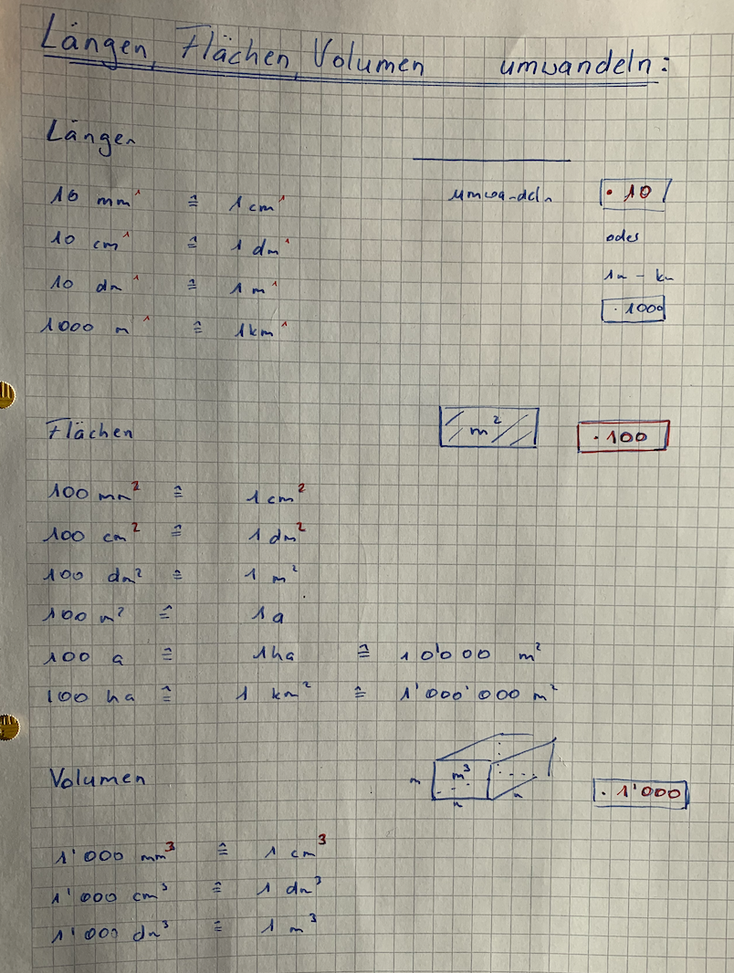 Längen, Flächen, Volumen umwandeln:
Längen
10 mm¹ ≙ 1 cm¹ umwandeln · 10
10 cm¹ ≙ 1 dm¹ oder
10 dm¹ ≙ 1 m¹ 1m - km
1000 m¹ ≙ 1km¹ · 1000
Flächen m² · 100
100 mm² ≙ 1 cm²
100 cm² ≙ 1 dm²
100 dm² ≙ 1 m²
100 m² ≙ 1a
100 a ≙ 1ha ≙ 10'000 m²
100 ha ≙ 1 km² ≙ 1'000'000 m²
Volumen m m³ m m · 1'000
1'000 mm³ ≙ 1 cm³
1'000 cm³ ≙ 1 dm³
1'000 dm³ ≙ 1 m³